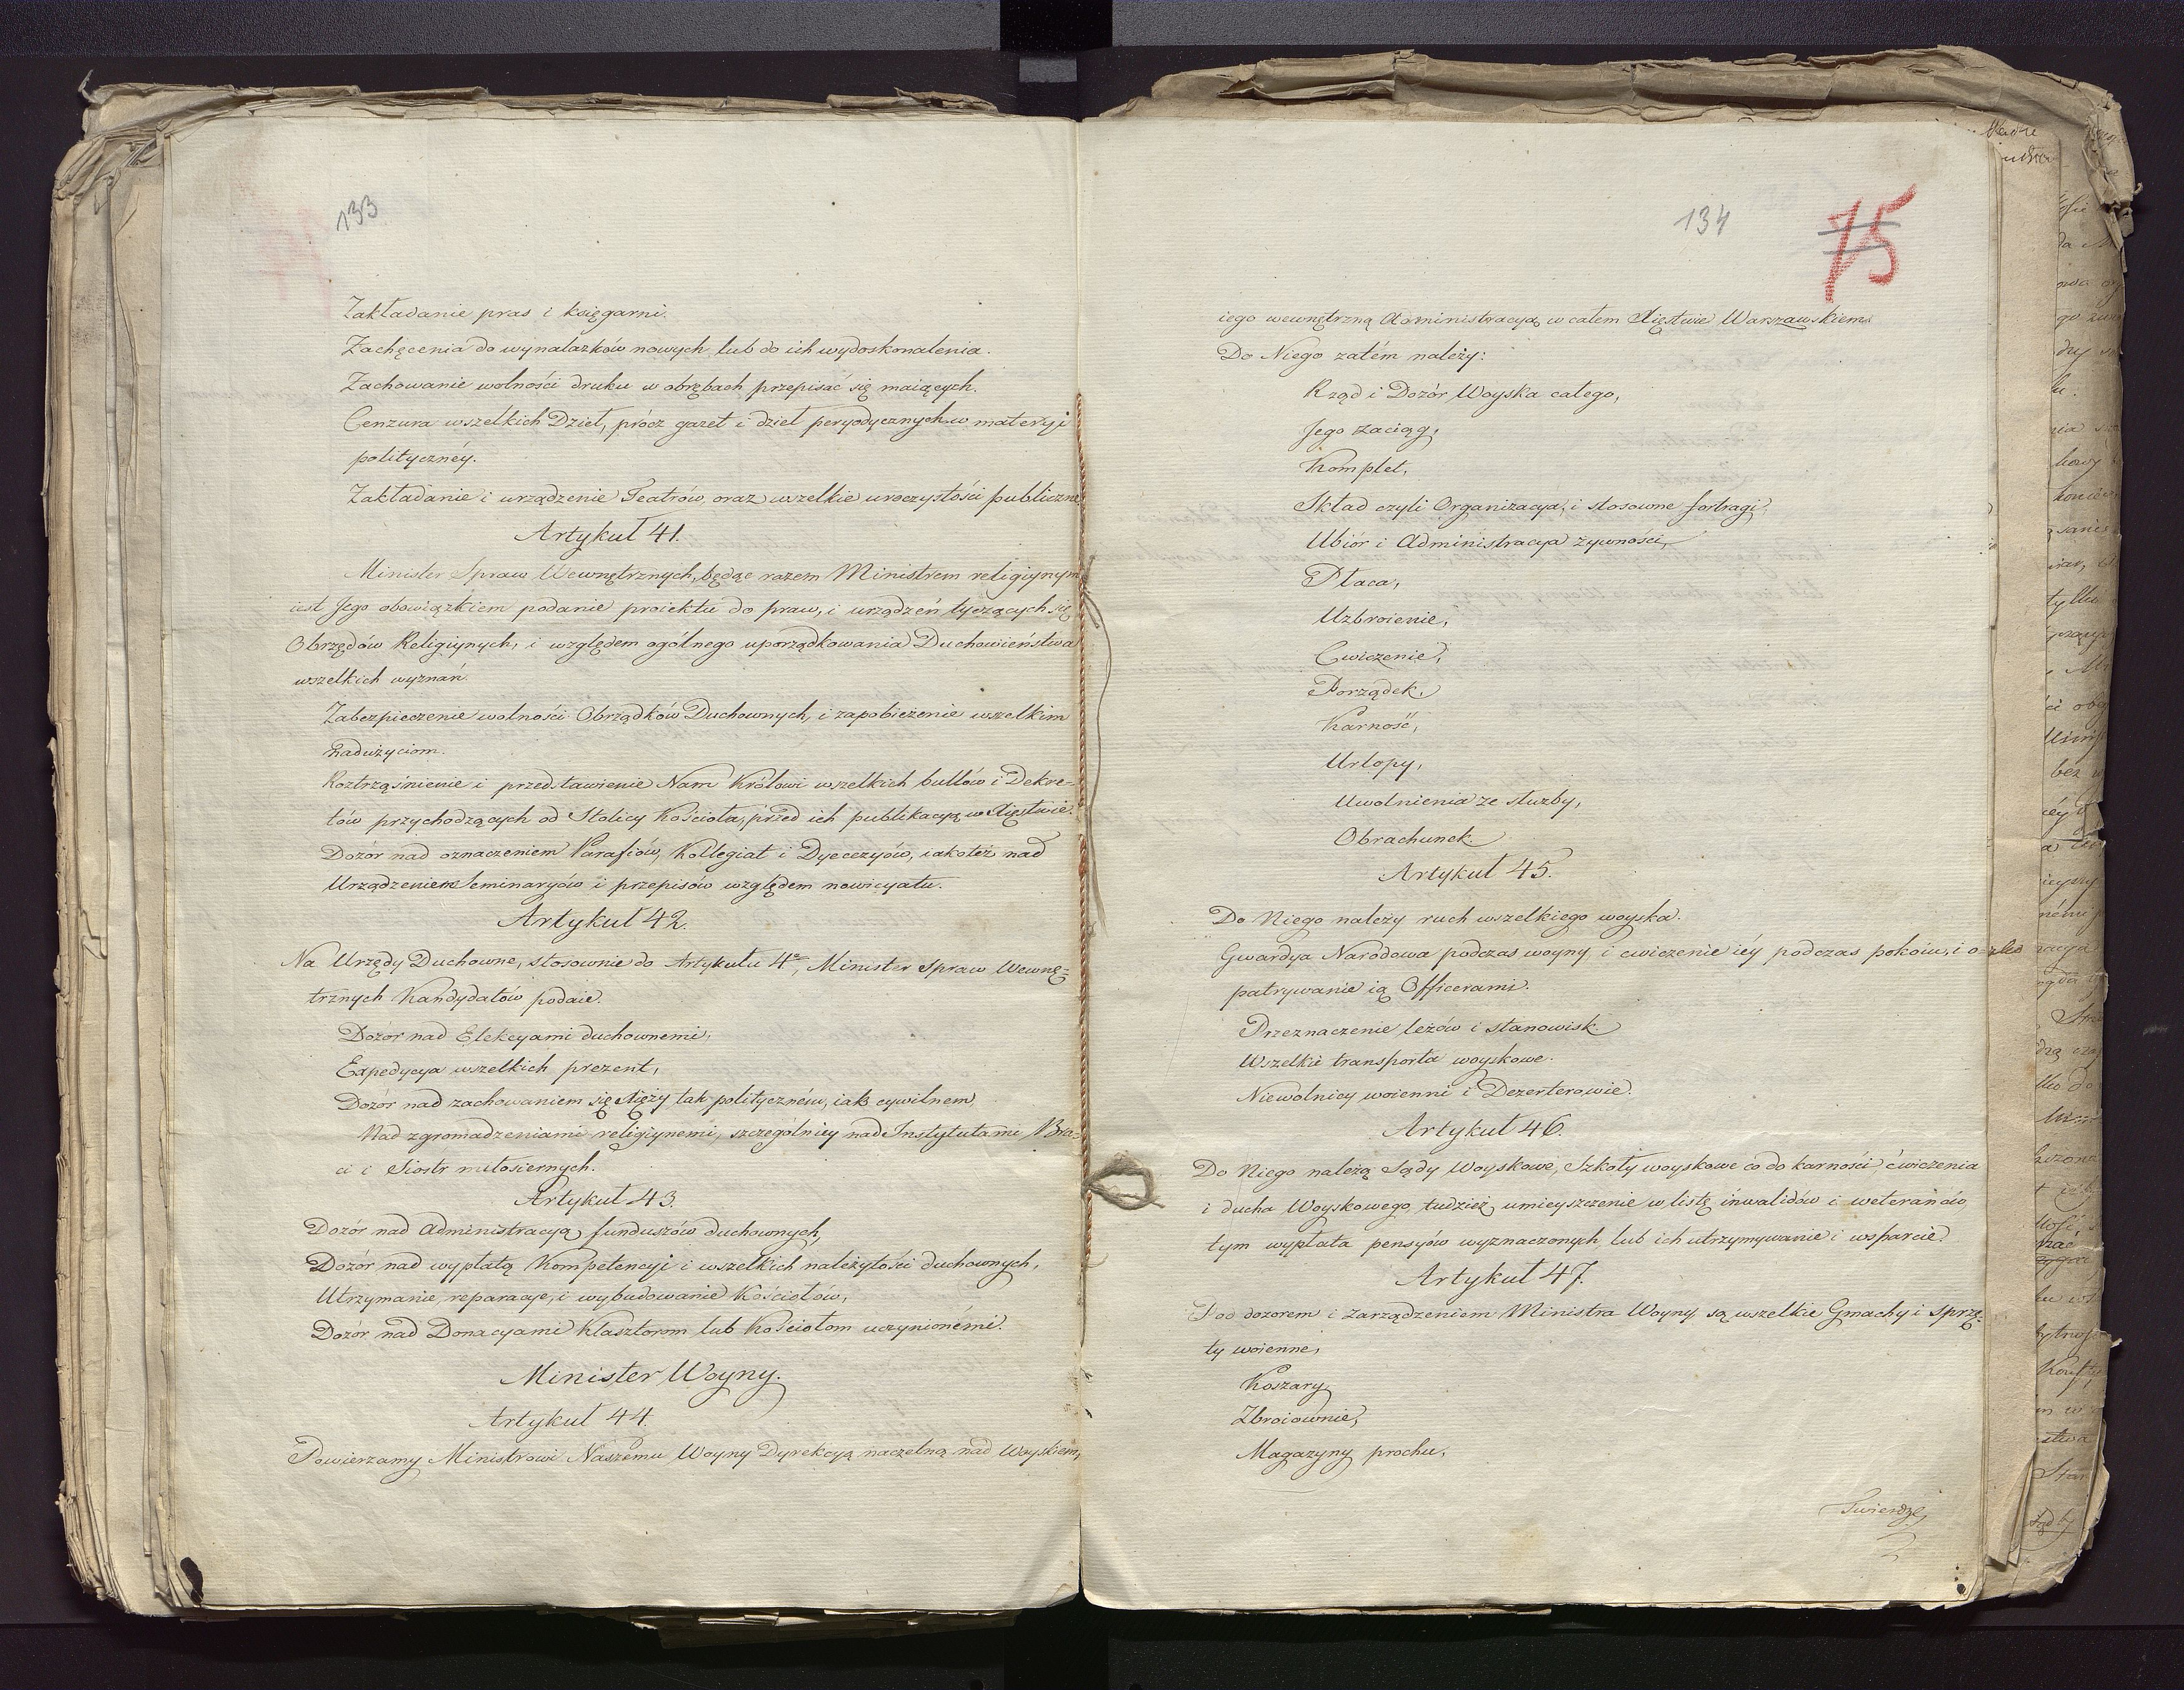 133
Zakładanie pras i księgarni.
Zachęcenia do wynalazków nowych lub do ich wydoskonalenia.
Zachowanie wolności druku w obrębach przepisać się maiących.
Cenzura wszelkich Dzieł, prócz gazet i dzieł peryodycznych w materyi
politycznéy.
Zakładanie i urządzenie Teatrów, oraz wszelkie uroczystości publiczne.
Artykuł 41.
Minister Spraw Wewnętrznych, będąc razem Ministrem religiynym
iest Jego obowiązkiem podanie proiektu do praw, i urządzeń tyczących się
Obrzędów Religiynych, i względem ogólnego uporządkowania Duchowieństwa
wszelkich wyznań.
Zabezpieczenie wolności Obrządków Duchownych, i zapobieżenie wszelkim
nadużyciom.
Roztrząśnienie i przedstawienie Nam Królowi wszelkich bullów i Dekre=
tów przychodzących od Stolicy Kościoła, przed ich publikacyą w Xięstwie.
Dozór nad oznaczeniem Parafiów, Kollegiat i Dyecezyów, iakoteż nad
Urządzeniem Seminaryów i przepisów względem nowicyatu.
Artykuł 42.
Na Urzędy Duchowne, stosownie do Artykułu 4º, Minister Spraw Wewnę=
trznych Kandydatów podaie.
Dozór nad Elekcyami duchownemi,
Expedycya wszelkich prezent,
Dozór nad zachowaniem się Xięży tak polityczném, iak cywilnem,
Nad zgromadzeniami religiynemi, szczególniey nad Instytutami Bra=
ci i Siostr miłosiernych.
Artykuł 43.
Dozór nad Administracyą funduszów duchownych,
Dozór nad wypłatą Kompetencyi i wszelkich należytości duchownych,
Utrzymanie, reparacye, i wybudowanie Kościołów,
Dozór nad Donacyami Klasztorom lub Kościołom uczynionémi.
Minister Woyny.
Artykuł 44.
Powierzamy Ministrowi Naszemu Woyny Dyrekcyą naczelną nad Woyskiem,
134
75
iego wewnętrzną Administracyą w całem Xięstwie Warszawskiem.
Do Niego zatém należy:
Rząd i Dozór Woyska całego,
Jego zaciąg,
Komplet,
Skład czyli Organizacya, i stosowne fortragi,
Ubiór i Administracya żywności,
Płaca,
Uzbroienie,
Cwiczenie,
Porządek,
Karność,
Urlopy,
Uwolnienia ze służby,
Obrachunek.
Artykuł 45.
Do Niego należy ruch wszelkiego woyska.
Gwardya Narodowa podczas woyny, i cwiczenie iéy podczas pokoiu, i o=
patrywanie ią Officerami.
Przeznaczenie leżów i stanowisk.
Wszelkie transporta woyskowe.
Niewolnicy woienni i Dezerterowie.
Artykuł 46.
Do Niego należą Sądy Woyskowe, Szkoły woyskowe co do karności, ćwiczenia
i ducha Woyskowego, tudzież umieyszczenie w listę inwalidów i weteranów,
tym wypłata pensyów wyznaczonych lub ich utrzymywanie i wsparcie.
Artykuł 47.
Pod dozorem i zarządzeniem Ministra Woyny, są wszelkie Gmachy i sprzę=
ty woienne,
Koszary,
Zbroiownie,
Magazyny prochu,
Twierdze,